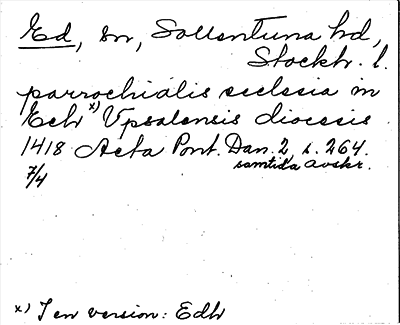 Ed, sn, Sollentuna hd,
Stockh. l.
parrochialis ecclesia in
Ech x) Vpsalensis diocesis
1418 Acta Pont. Dan. 2, s. 264.
7/4 samtida avskr.
x) I en version: Edh